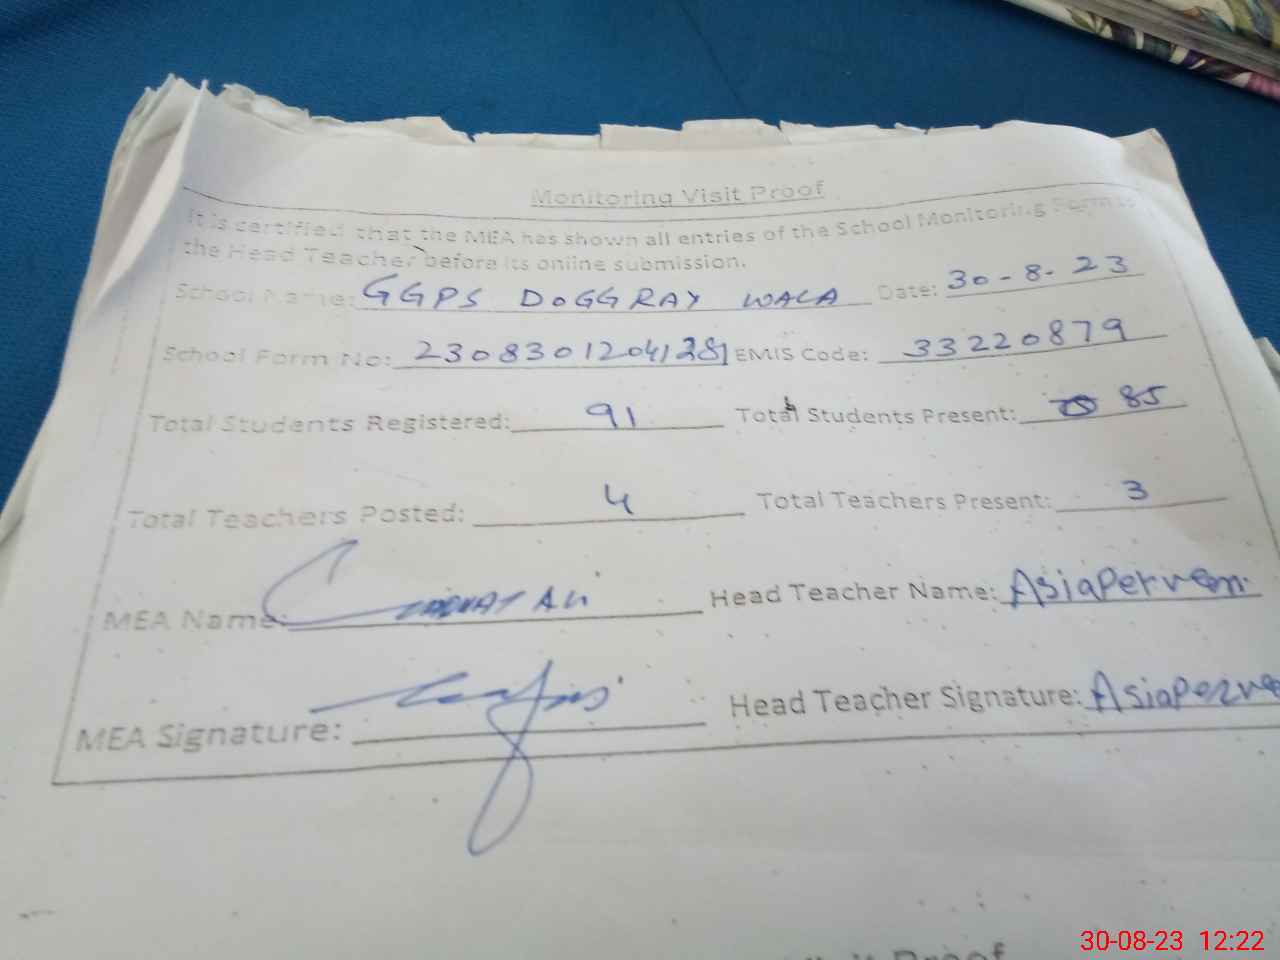 Monitoring Visit Proof
It is certified that the MEA has shown all entries of the School Monitoring Form to
the Head Teacher before its online submission.
School Name: GGPS DOGGRAY WALA Date: 30-8-23
School Form No: EMIS Code: 33220879
Total Students Registered: 91 Total Students Present: 85
Total Teachers Posted: 4 Total Teachers Present: 3
MEA Name: ALI Head Teacher Name: Asiaperveen
MEA Signature: Head Teacher Signature: Asiaperve
Visit Proof
30-08-23 12:22